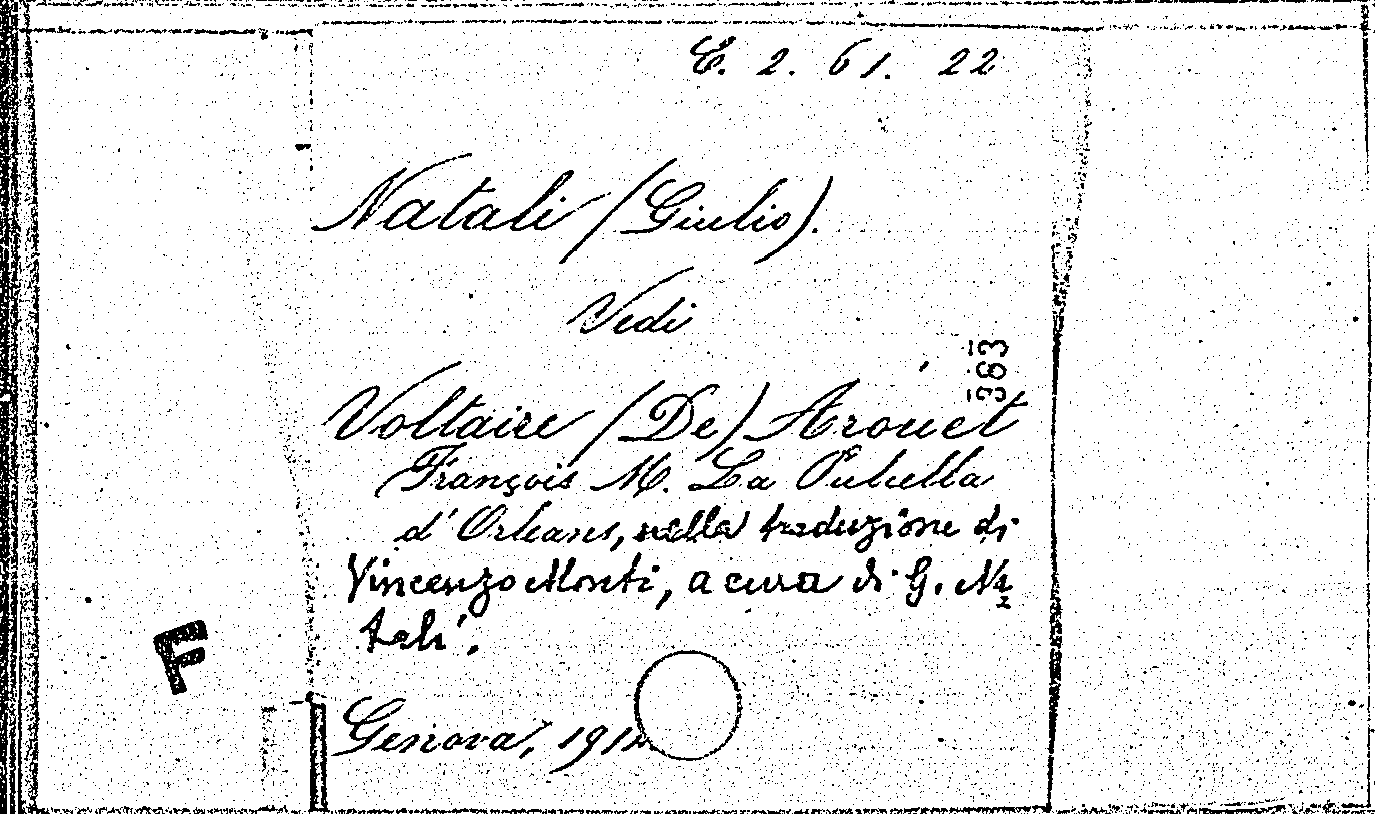 E. 2. 61. 22
Natali (Giulio).
Vedi
363
Voltaire (De) Arouet
François M. La Pulcella
d'Orleans, nella traduzione di
Vincenzo Monti, a cura di G. Na=
tali.
F
Genova,